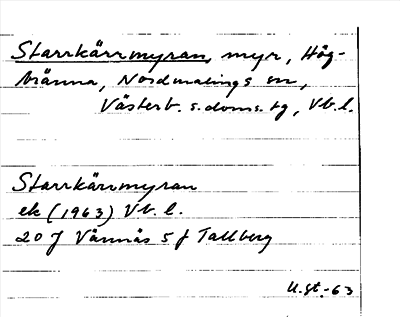 Starrkärrmyran, myr, Hög-
bränna, Nordmalings sn,
Västerb. s. doms. tg, Vb. l.
Starrkärrmyran
ek (1963) Vb. l.
20 J Vännäs 5 f Tallberg
U.gt.-63